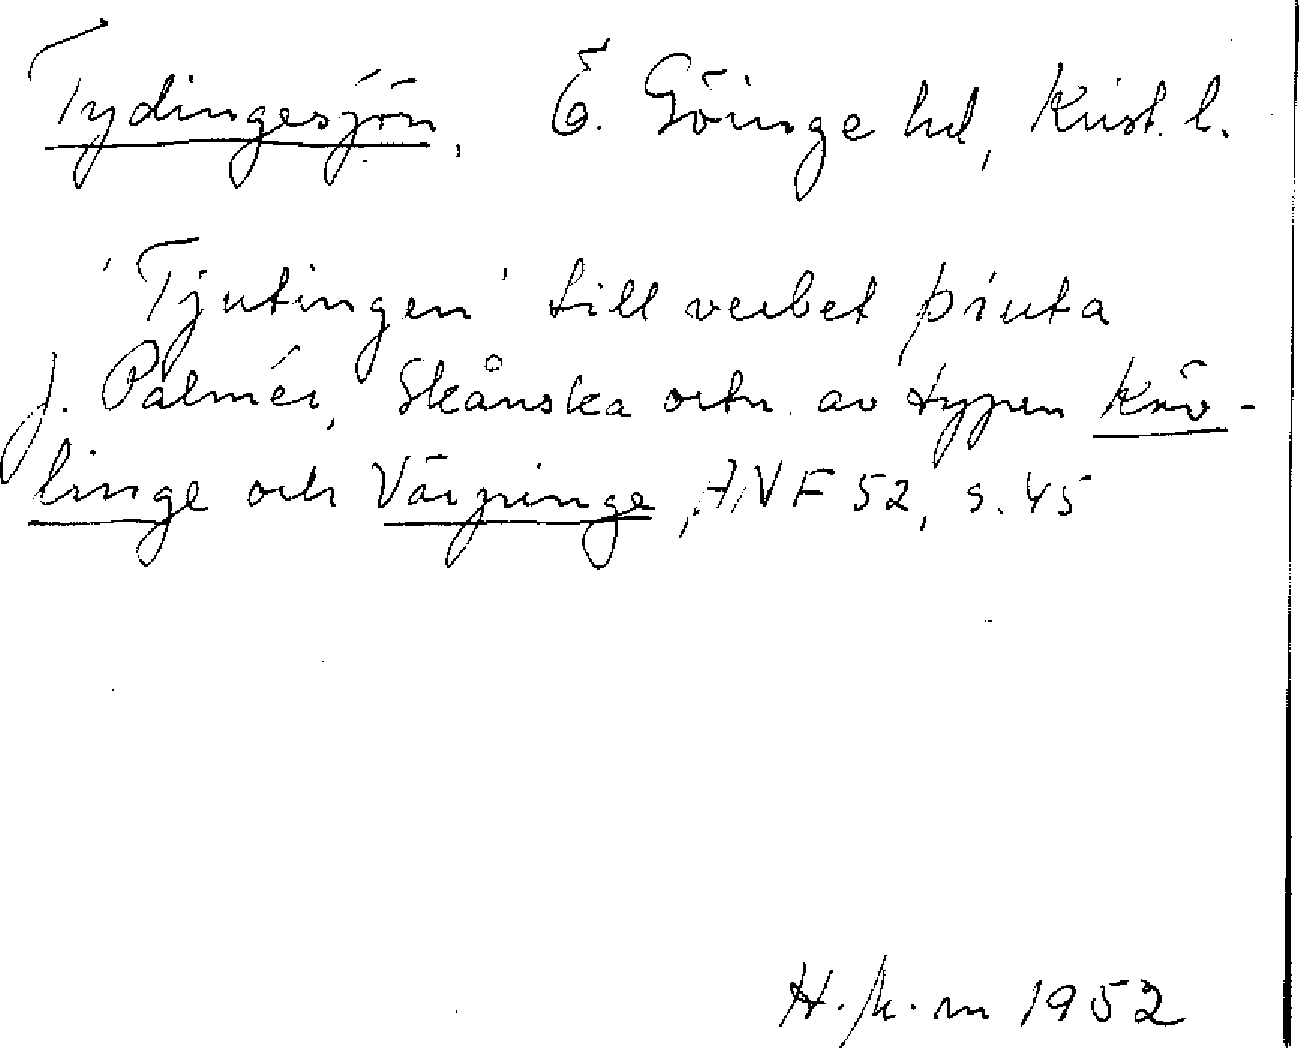 Tydingesjön, Ö. Göinge hd, Krist. l.
'Tjutingen' till verbet þiuta
J. Palmér, Skånska ortn. av typen Käv-
linge och Värpinge, ANF 52, s. 45
H. 1952